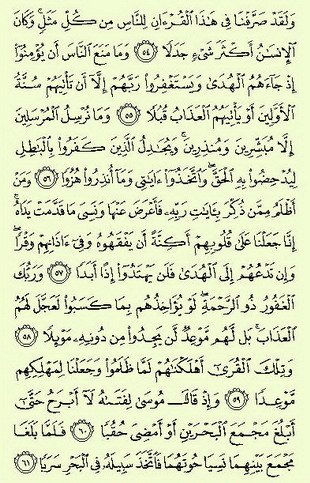 وَلَقَدْ صَرَّفْنَا فِي هَٰذَا ٱلْقُرْءَانِ لِلنَّاسِ مِن كُلِّ مَثَلٍ ۚ وَكَانَ
ٱلْإِنسَٰنُ أَكْثَرَ شَىْءٍ جَدَلًا ﴿٥٤﴾ وَمَا مَنَعَ ٱلنَّاسَ أَن يُؤْمِنُوٓا۟
إِذْ جَآءَهُمُ ٱلْهُدَىٰ وَيَسْتَغْفِرُوا۟ رَبَّهُمْ إِلَّآ أَن تَأْتِيَهُمْ سُنَّةُ
ٱلْأَوَّلِينَ أَوْ يَأْتِيَهُمُ ٱلْعَذَابُ قُبُلًا ﴿٥٥﴾ وَمَا نُرْسِلُ ٱلْمُرْسَلِينَ
إِلَّا مُبَشِّرِينَ وَمُنذِرِينَ ۚ وَيُجَٰدِلُ ٱلَّذِينَ كَفَرُوا۟ بِٱلْبَٰطِلِ
لِيُدْحِضُوا۟ بِهِ ٱلْحَقَّ ۖ وَٱتَّخَذُوٓا۟ ءَايَٰتِى وَمَآ أُنذِرُوا۟ هُزُوًا ﴿٥٦﴾ وَمَنْ
أَظْلَمُ مِمَّن ذُكِّرَ بِـَٔايَٰتِ رَبِّهِۦ فَأَعْرَضَ عَنْهَا وَنَسِىَ مَا قَدَّمَتْ يَدَاهُ ۚ
إِنَّا جَعَلْنَا عَلَىٰ قُلُوبِهِمْ أَكِنَّةً أَن يَفْقَهُوهُ وَفِىٓ ءَاذَانِهِمْ وَقْرًا ۖ
وَإِن تَدْعُهُمْ إِلَى ٱلْهُدَىٰ فَلَن يَهْتَدُوٓا۟ إِذًا أَبَدًا ﴿٥٧﴾ وَرَبُّكَ
ٱلْغَفُورُ ذُو ٱلرَّحْمَةِ ۖ لَوْ يُؤَاخِذُهُم بِمَا كَسَبُوا۟ لَعَجَّلَ لَهُمُ
ٱلْعَذَابَ ۚ بَل لَّهُم مَّوْعِدٌ لَّن يَجِدُوا۟ مِن دُونِهِۦ مَوْئِلًا ﴿٥٨﴾
وَتِلْكَ ٱلْقُرَىٰٓ أَهْلَكْنَٰهُمْ لَمَّا ظَلَمُوا۟ وَجَعَلْنَا لِمَهْلِكِهِم
مَّوْعِدًا ﴿٥٩﴾ وَإِذْ قَالَ مُوسَىٰ لِفَتَىٰهُ لَآ أَبْرَحُ حَتَّىٰٓ
أَبْلُغَ مَجْمَعَ ٱلْبَحْرَيْنِ أَوْ أَمْضِىَ حُقُبًا ﴿٦٠﴾ فَلَمَّا بَلَغَا
مَجْمَعَ بَيْنِهِمَا نَسِيَا حُوتَهُمَا فَٱتَّخَذَ سَبِيلَهُۥ فِى ٱلْبَحْرِ سَرَبًا ﴿٦١﴾